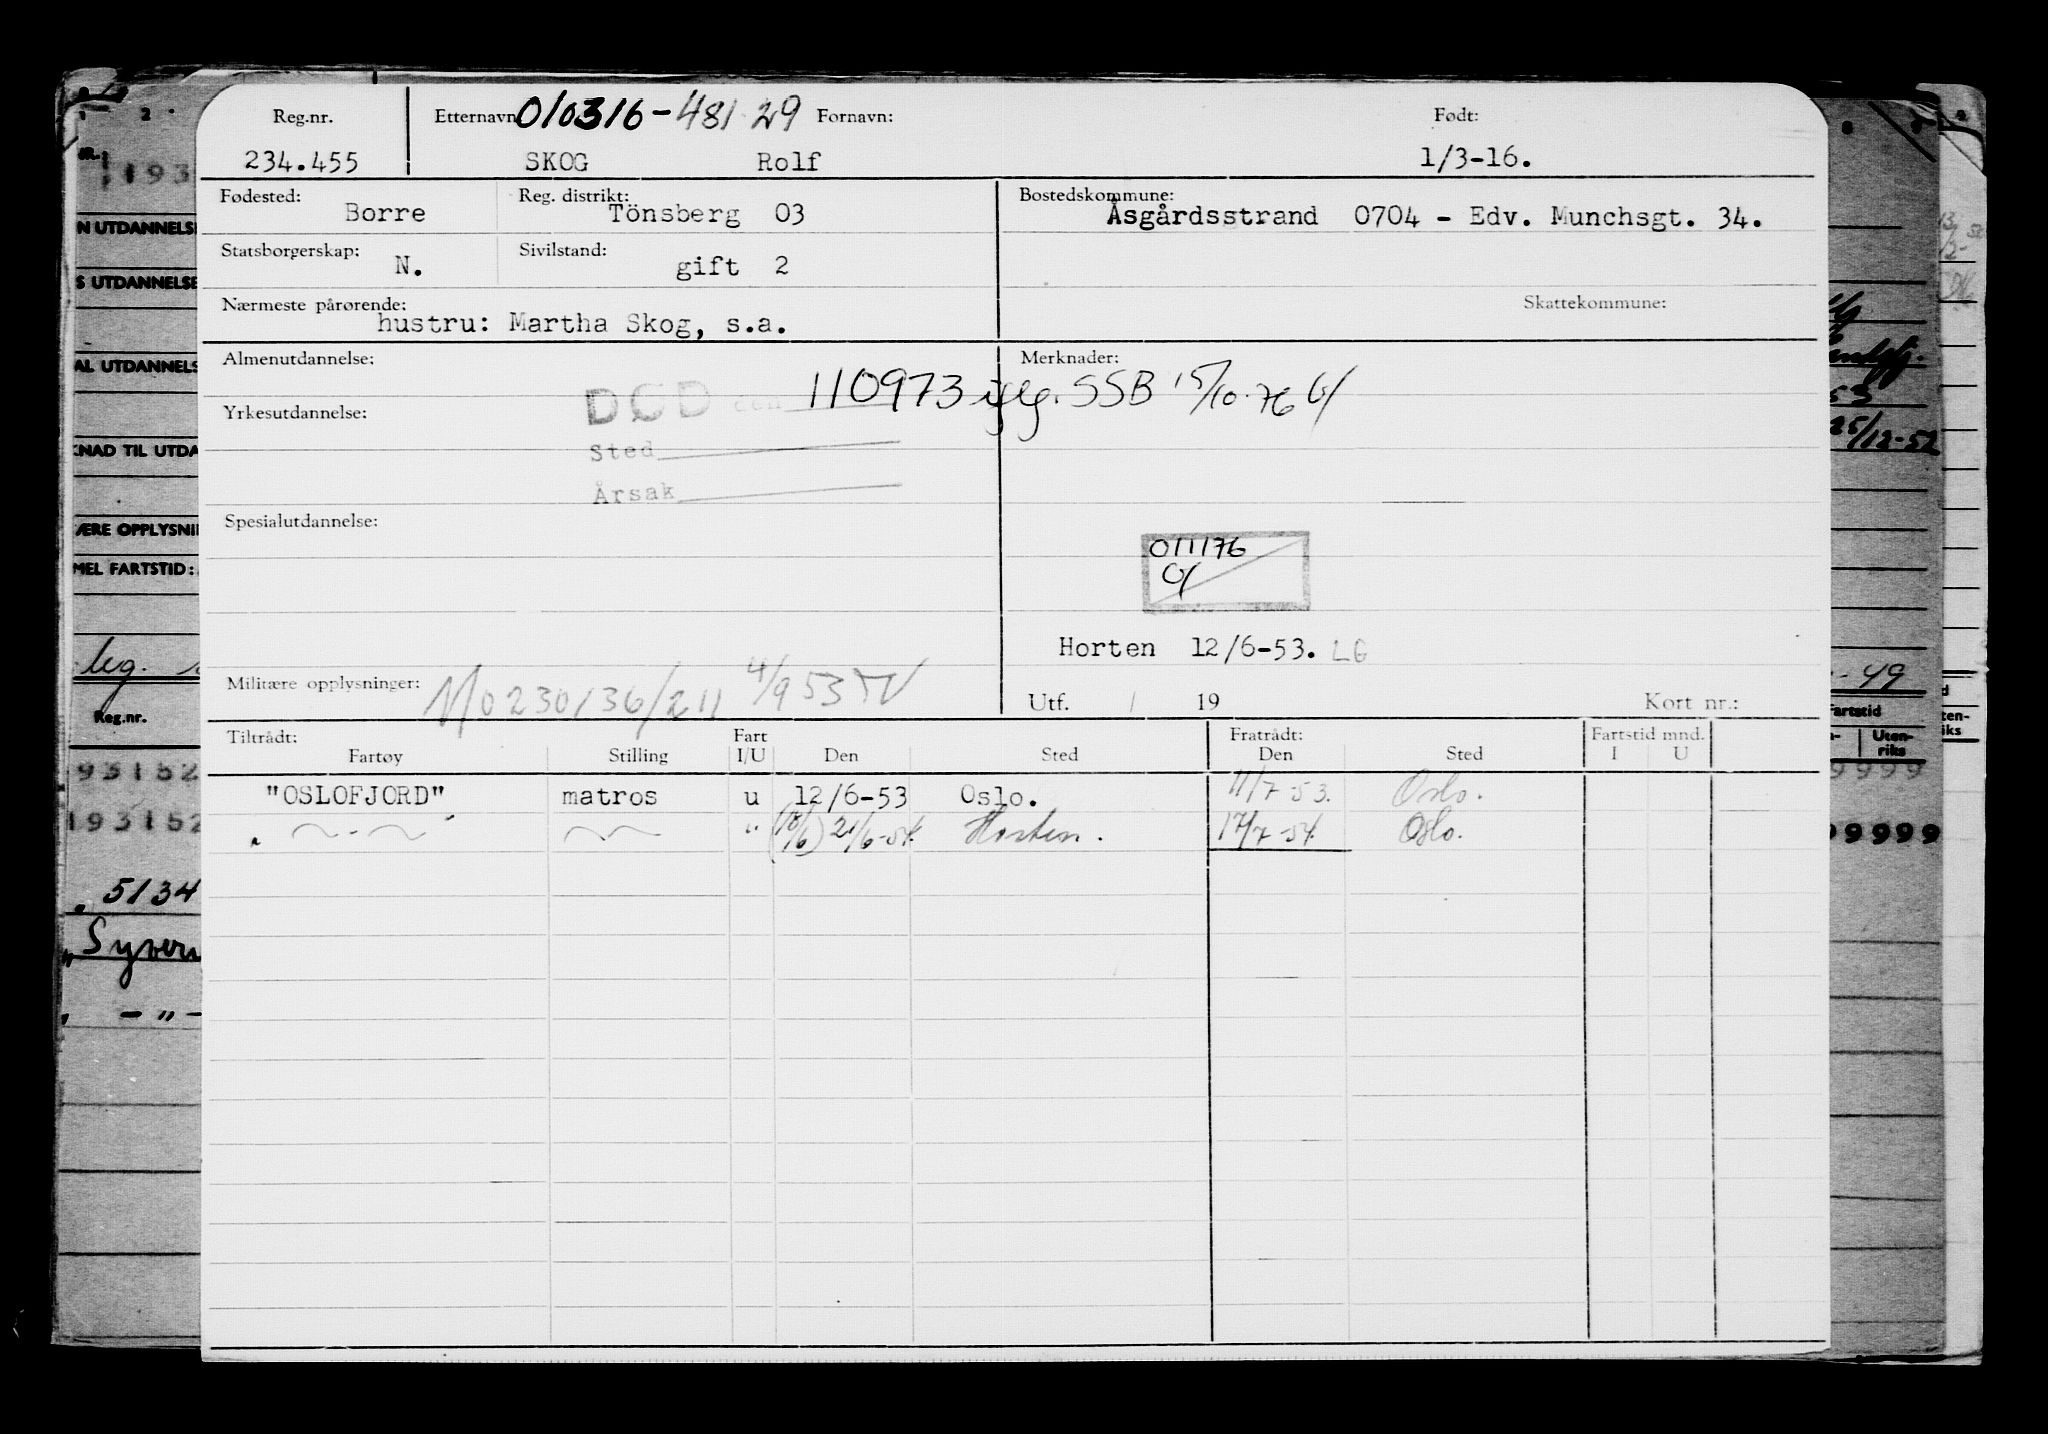 Reg.nr. Etternavn 010316-481 29 Fornavn: Født:
234.455 SKOG Rolf 1/3-16.
Fødested: Borre Reg. distrikt: Tönsberg 03 Bostedskommune: Åsgårdsstrand 0704 - Edv. Munchsgt. 34.
Statsborgerskap: N. Sivilstand: gift 2
Nærmeste pårørende: Skattekommune:
hustru: Martha Skog, s.a.
Almenutdannelse: Merknader:
DØD den 110973 iflg. SSB 15/10-76
Yrkesutdannelse:
Sted
Årsak
Spesialutdannelse:
011176
Horten 12/6-53. LG
Militære opplysninger: 0230136/211 4/9 53
Utf. / 19 Kort nr.:
Tiltrådt: Fart Fratrådt: Fartstid mnd.
Fartøy Stilling I/U Den Sted Den Sted I U
"OSLOFJORD" matros u 12/6-53 Oslo. 11/7-53. Oslo.
" (18/6) 21/6-54. Horten. 17/7-54. Oslo.
1 2
193
N UTDANNELSE
S UTDANNELSE
AL UTDANNELS
KNAD TIL UTDA
ÆRE OPPLYSNI
MEL FARTSTID:
leg.
Reg.nr.
93152
193152
5134
"Syvern
- " -
53
25/12-52
-49
Fartstid
Uten-
riks
9999
99999